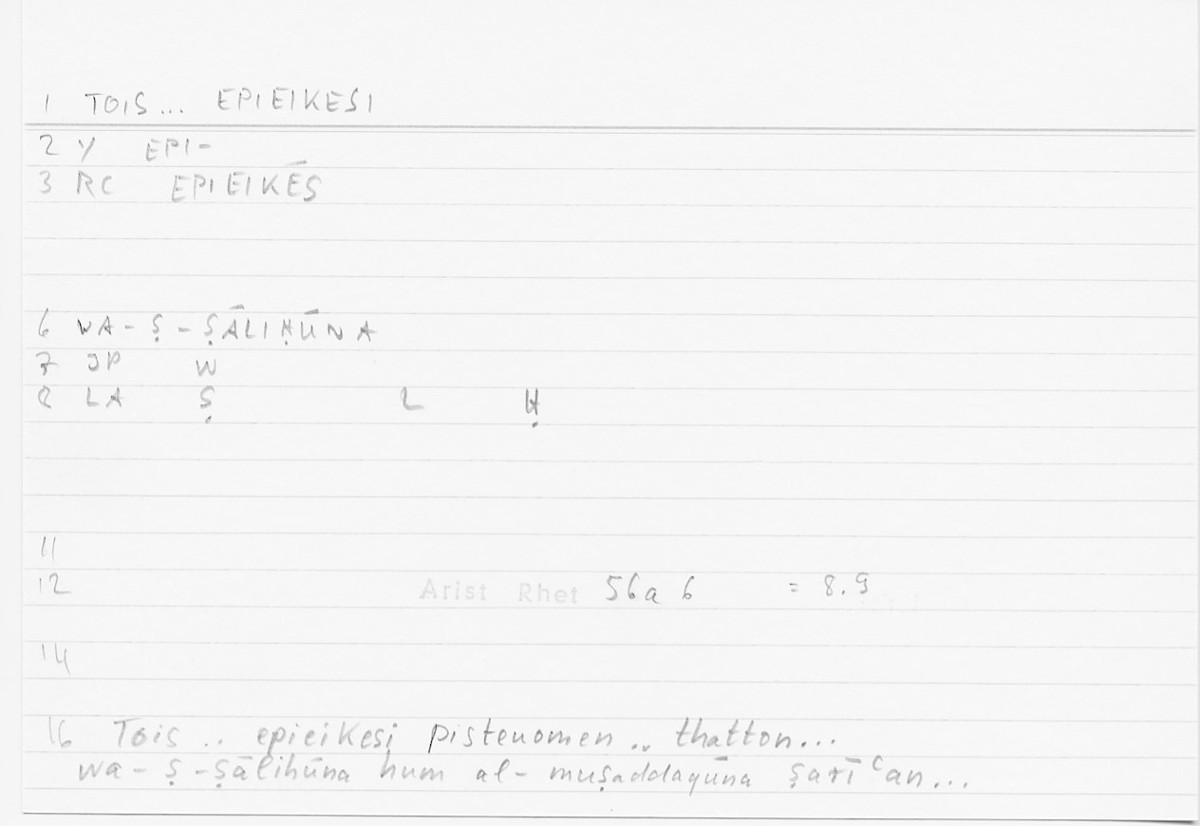 1 TOIS... EPIEIKESI
2 Y EPI-
3 RC EPIEIKĒS
6 WA-Ṣ-ṢĀLIḤŪNA
7 JP W
8 LA Ṣ L Ḥ
11
12 Arist Rhet 56a 6 = 8.9
14
16 Tois .. epieikesi pisteuomen .. thatton...
wa-ṣ-ṣālihūna hum al-muṣaddaqūna ṣarīʿan...